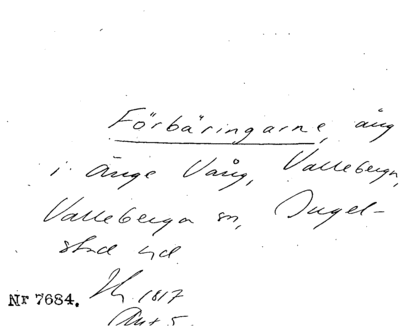 Förbäringarne, äng
i Änge Vång, Valleberga,
Valleberga sn, Ingel-
stad hd.
Nr 7684. 1817